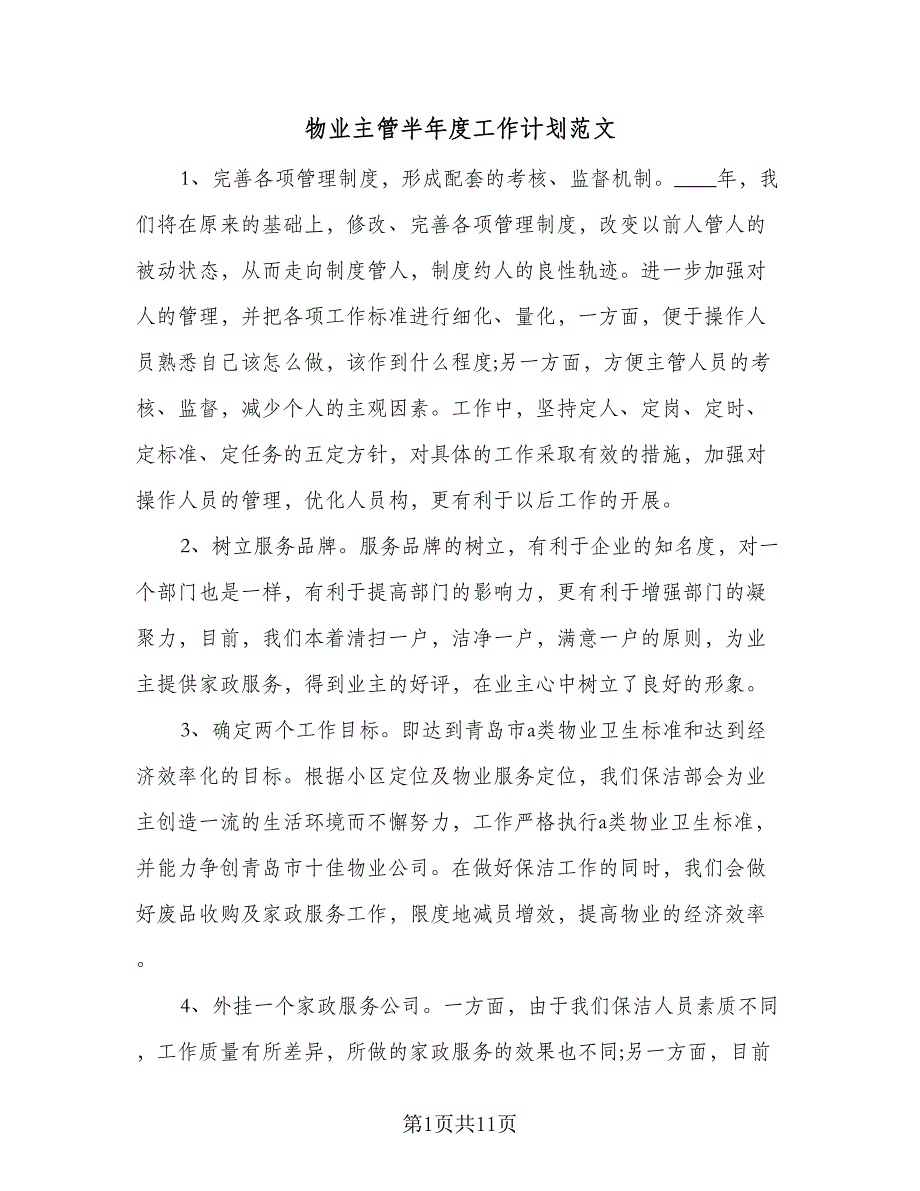 物业主管半年度工作计划范文
1、完善各项管理制度，形成配套的考核、监督机制。____年，我
们将在原来的基础上，修改、完善各项管理制度，改变以前人管人的
被动状态，从而走向制度管人，制度约人的良性轨迹。进一步加强对
人的管理，并把各项工作标准进行细化、量化，一方面，便于操作人
员熟悉自己该怎么做，该作到什么程度;另一方面，方便主管人员的考
核、监督，减少个人的主观因素。工作中，坚持定人、定岗、定时、
定标准、定任务的五定方针，对具体的工作采取有效的措施，加强对
操作人员的管理，优化人员构，更有利于以后工作的开展。
2、树立服务品牌。服务品牌的树立，有利于企业的知名度，对一
个部门也是一样，有利于提高部门的影响力，更有利于增强部门的凝
聚力，目前，我们本着清扫一户，洁净一户，满意一户的原则，为业
主提供家政服务，得到业主的好评，在业主心中树立了良好的形象。
3、确定两个工作目标。即达到青岛市a类物业卫生标准和达到经
济效率化的目标。根据小区定位及物业服务定位，我们保洁部会为业
主创造一流的生活环境而不懈努力，工作严格执行a类物业卫生标准，
并能力争创青岛市十佳物业公司。在做好保洁工作的同时，我们会做
好废品收购及家政服务工作，限度地减员增效，提高物业的经济效率
。
4、外挂一个家政服务公司。一方面，由于我们保洁人员素质不同
，工作质量有所差异，所做的家政服务的效果也不同;另一方面，目前
第1页共11页